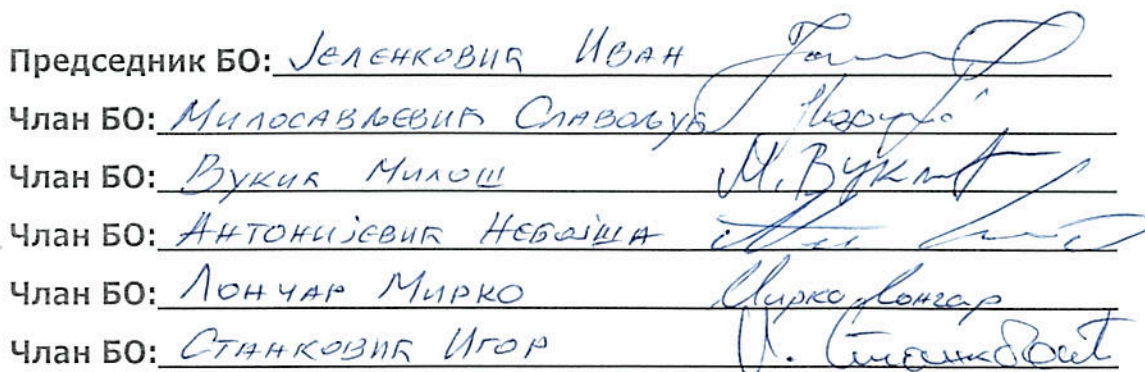 Председник БО: Јеленковић Иван
Члан БО: Милосављевић Славољуб
Члан БО: Вукић Милош М. Вукић
Члан БО: Антонијевић Небојша
Члан БО: Лончар Мирко Мирко Лончар
Члан БО: Станковић Игор И. Станковић